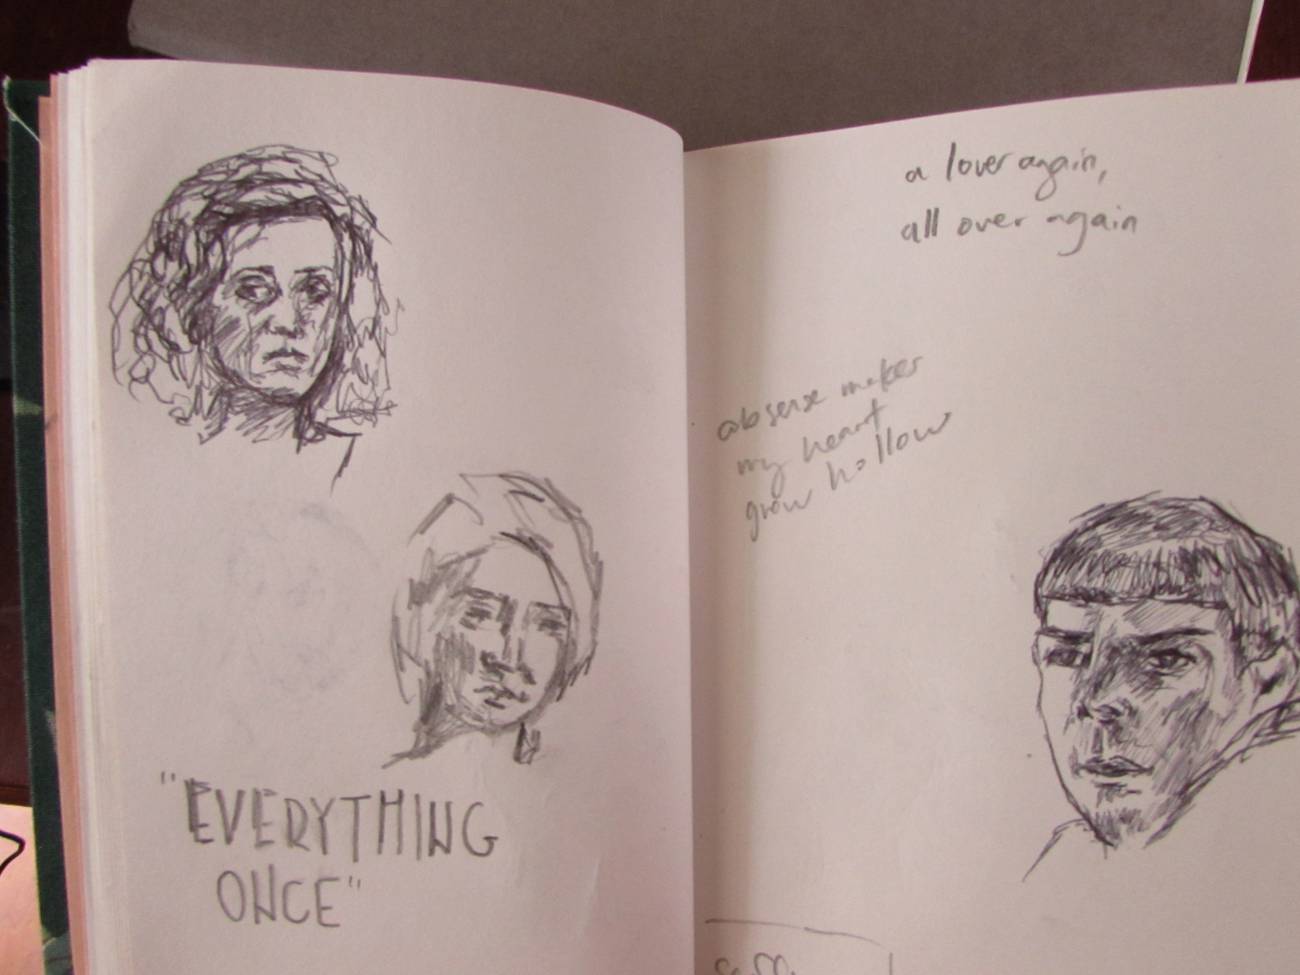 "EVERYTHING
ONCE"
a lover again,
all over again
absense makes
my heart
grow hollow